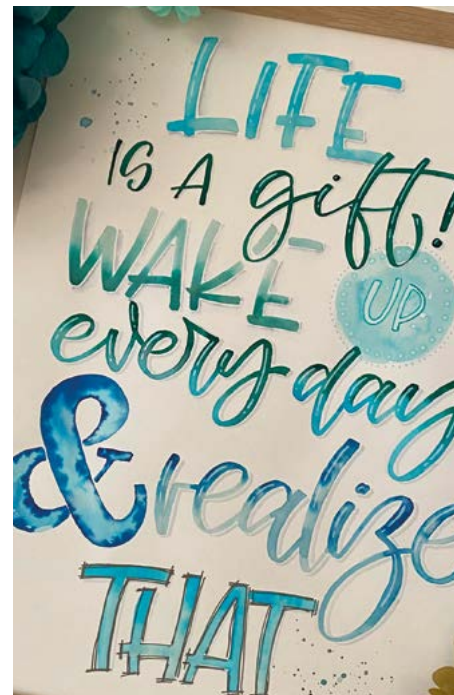 LIFE
IS A gift!
WAKE UP
every day
& realize
THAT